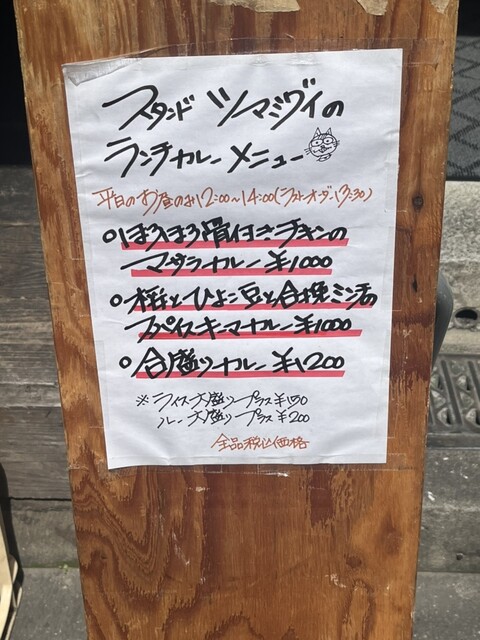 スタンド ツマミヴイの
ランチカレーメニュー
平日のお昼のみ12:00〜14:00(ラストオーダー13:30)
○ほろほろ骨付きチキンの
マサラカレー ¥1000
○ 桜とひよこ豆と合挽ミンチの
スパイスキーマカレー ¥1000
○ 合盛りカレー ¥1200
※ ライス大盛りプラス¥150
ルー大盛りプラス¥200
全品税込価格